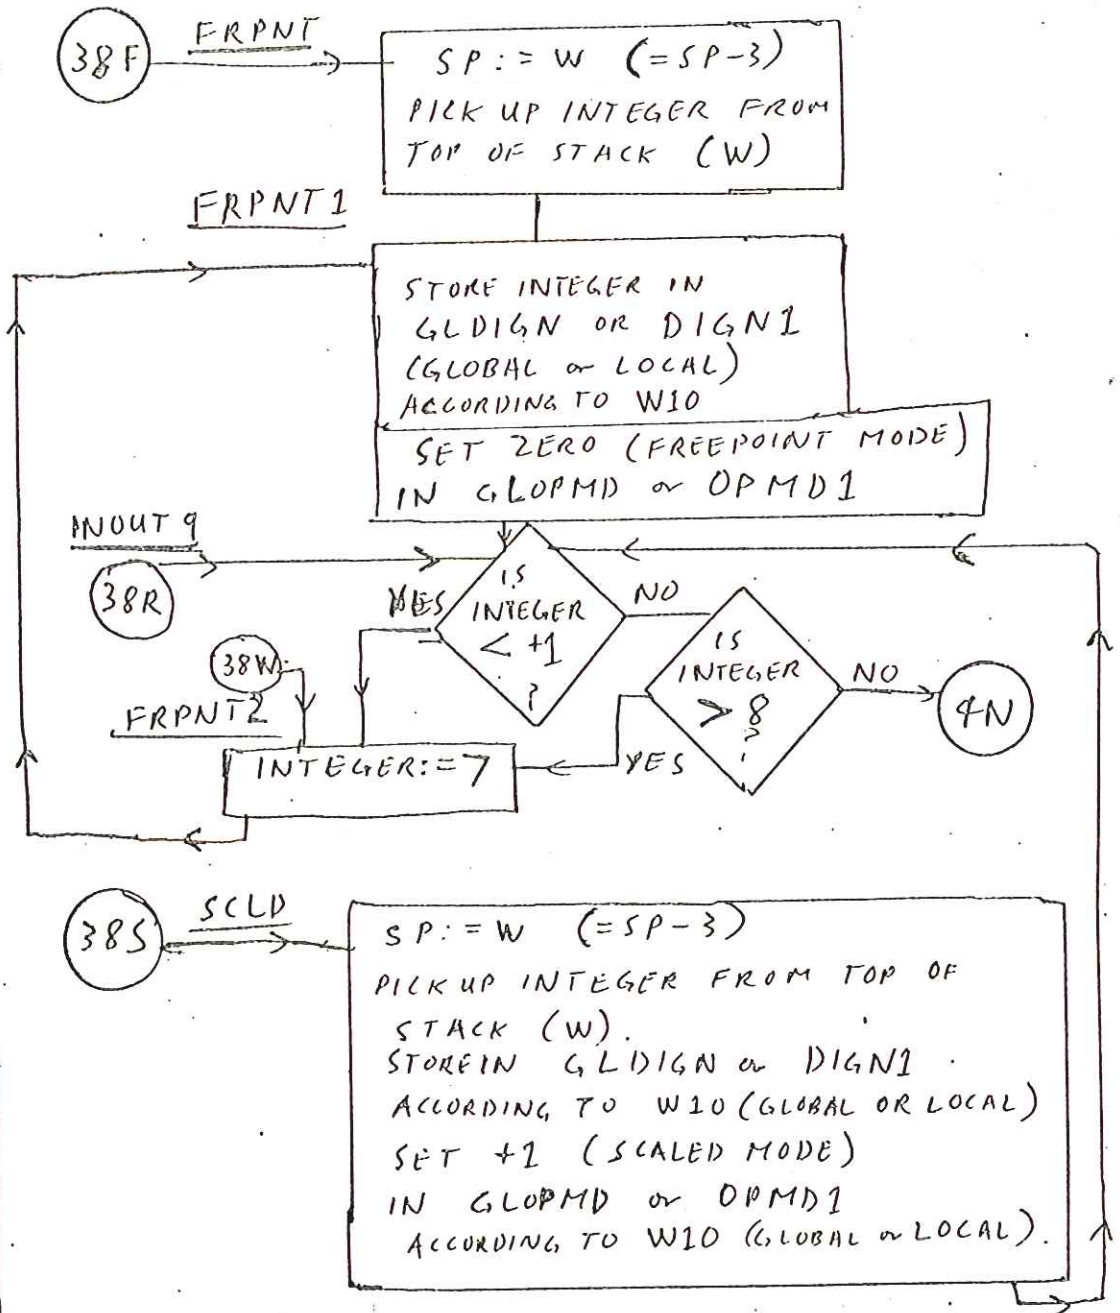 38F
FRPNT
SP:=W (=SP-3)
PICK UP INTEGER FROM
TOP OF STACK (W)
FRPNT1
STORE INTEGER IN
GLDIGN OR DIGN1
(GLOBAL or LOCAL)
ACCORDING TO W10
SET ZERO (FREEPOINT MODE)
IN GLOPMD or OPMD1
INOUT 9
38R
IS
INTEGER
< +1
?
YES
NO
IS
INTEGER
> 8
?
NO
4N
38W
FRPNT2
INTEGER:=7
YES
38S
SCLD
SP:=W (=SP-3)
PICK UP INTEGER FROM TOP OF
STACK (W).
STORE IN GLDIGN or DIGN1
ACCORDING TO W10 (GLOBAL OR LOCAL)
SET +1 (SCALED MODE)
IN GLOPMD or OPMD1
ACCORDING TO W10 (GLOBAL or LOCAL).